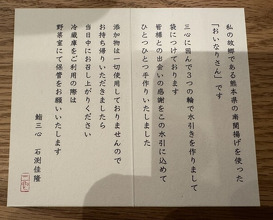 私の故郷である熊本県の南関揚げを使った
「おいなりさん」です
三心に因んで３つの輪で水引きを作りまして
袋につけております
皆様との出会いの感謝をこの水引に込めて
ひとつひとつ手作りいたしました
添加物は一切使用しておりませんので
お持ち帰りいただきましたら
当日中にお召し上がりください
冷蔵庫をご利用の際は
野菜室にて保管をお願いいたします
鮨三心　石渕佳隆